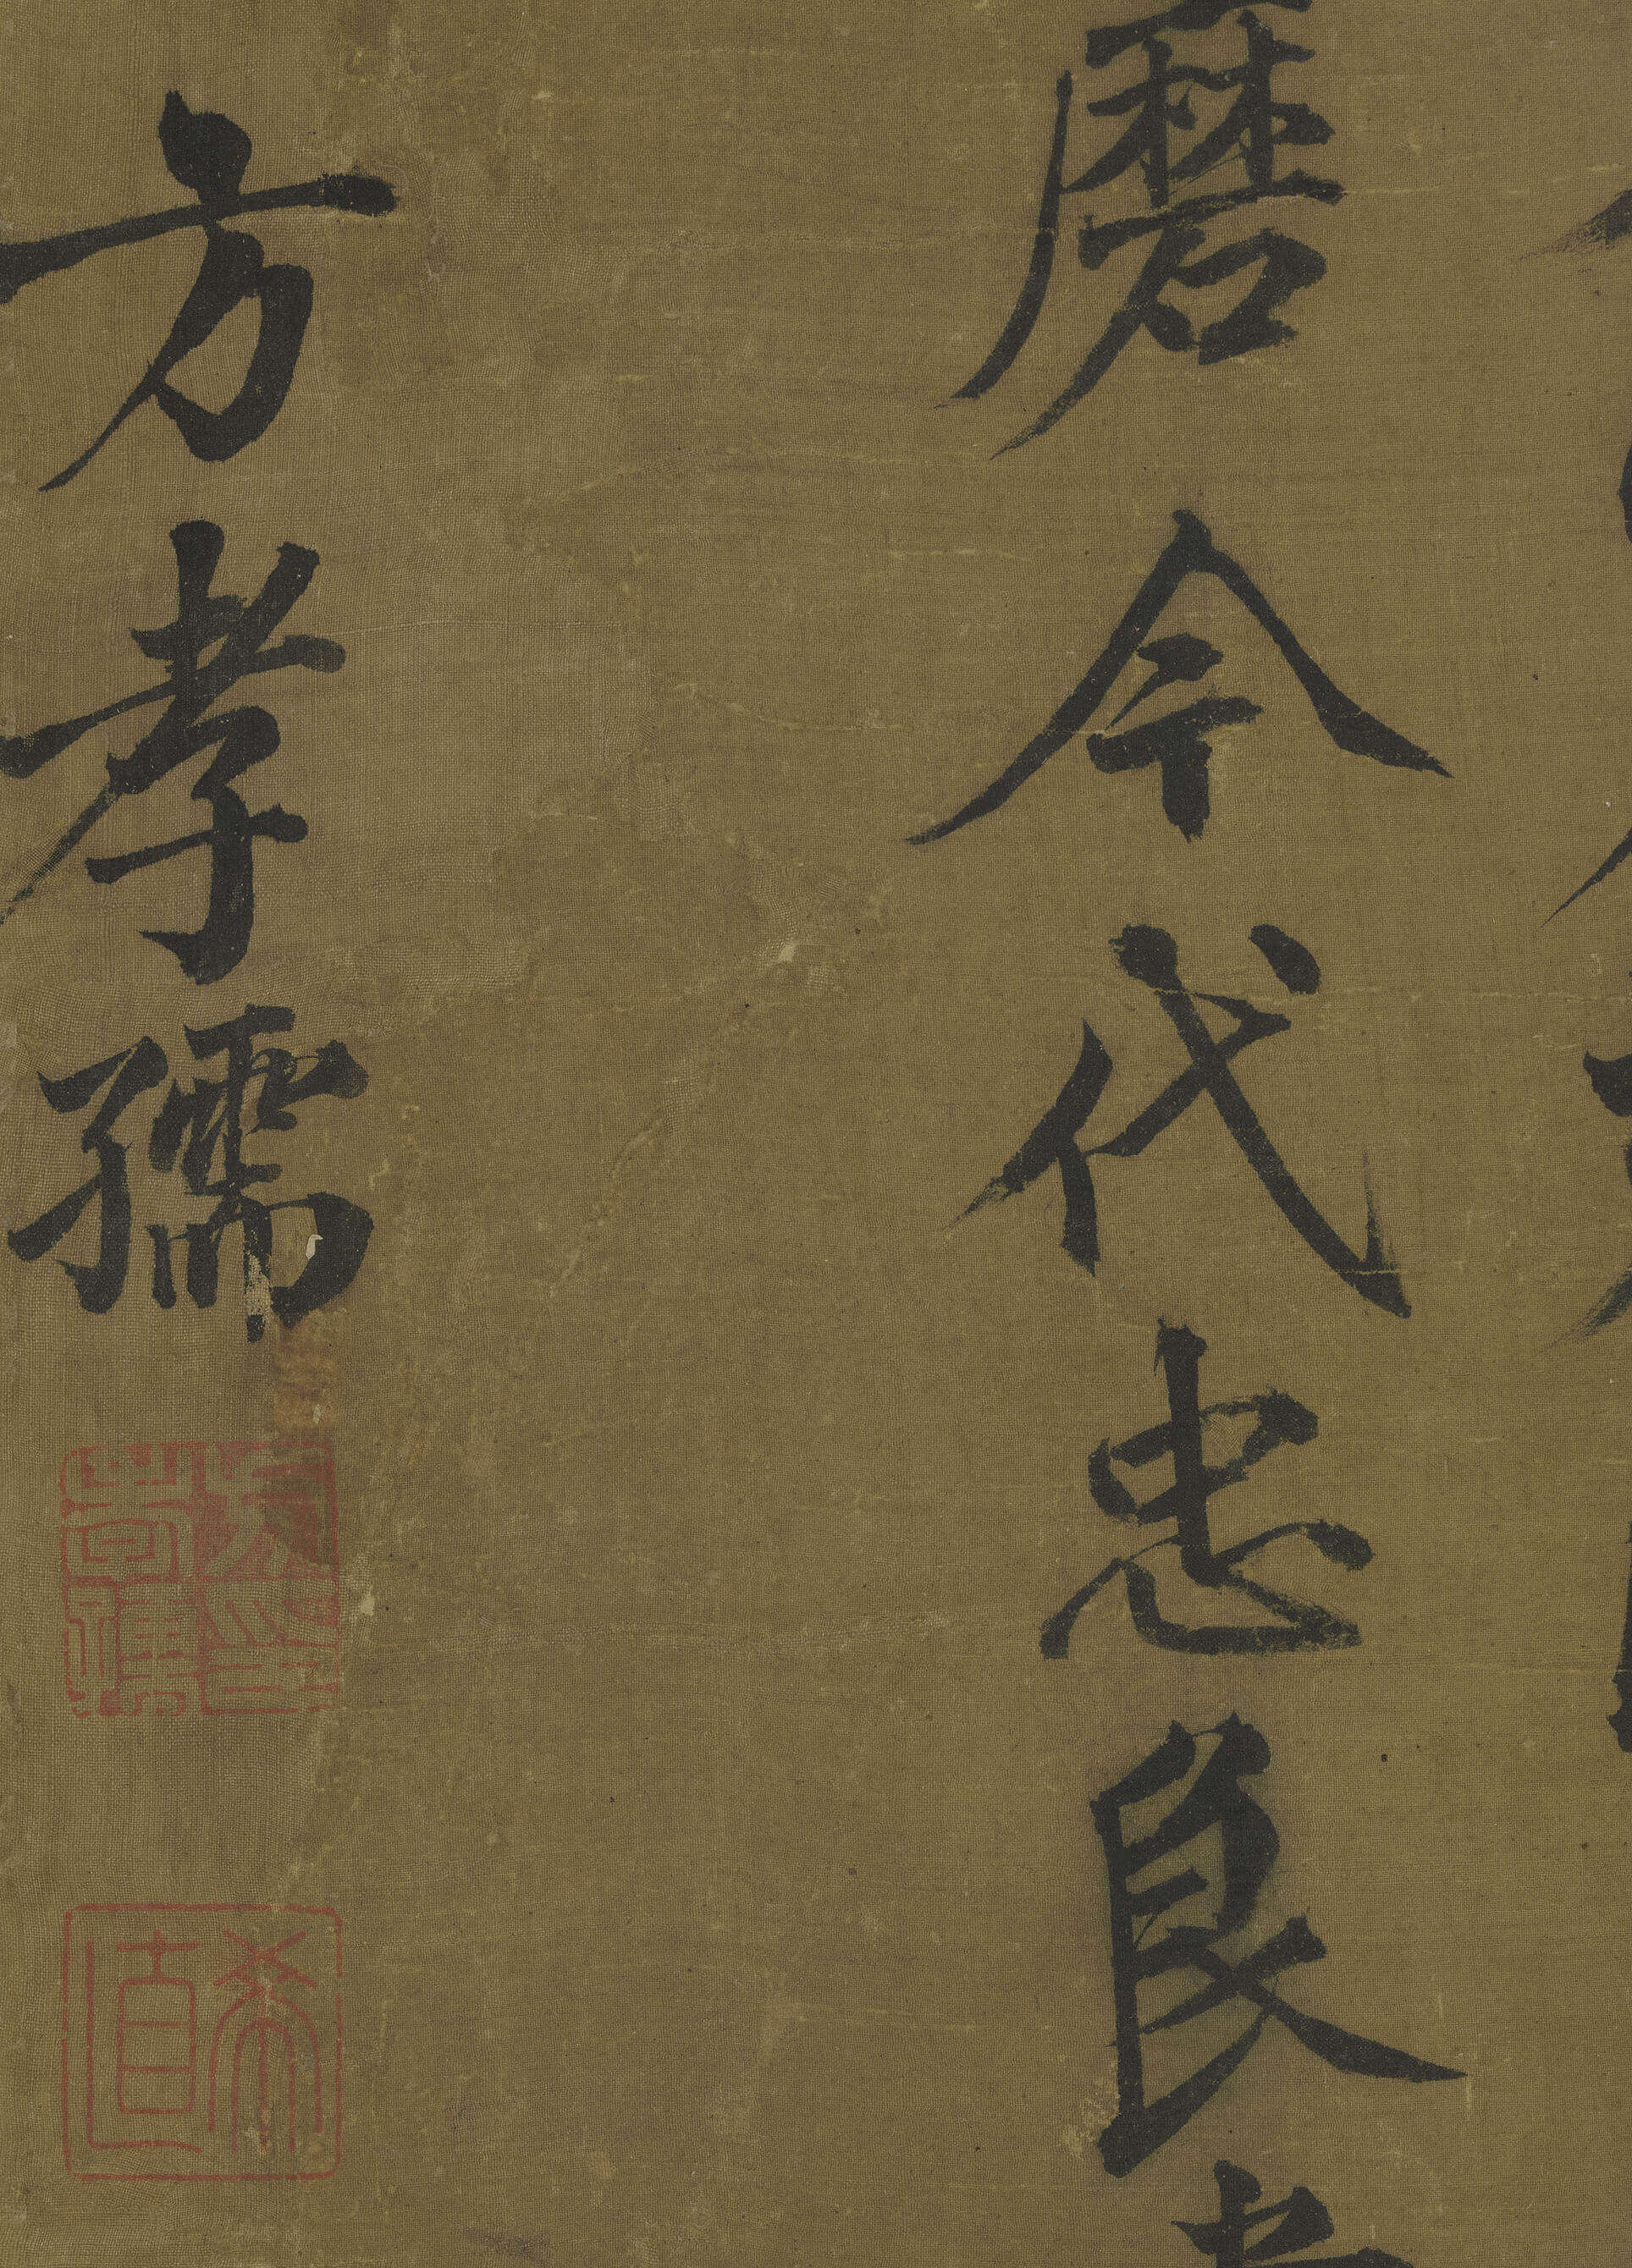 磨今代忠良
方孝孺
希直